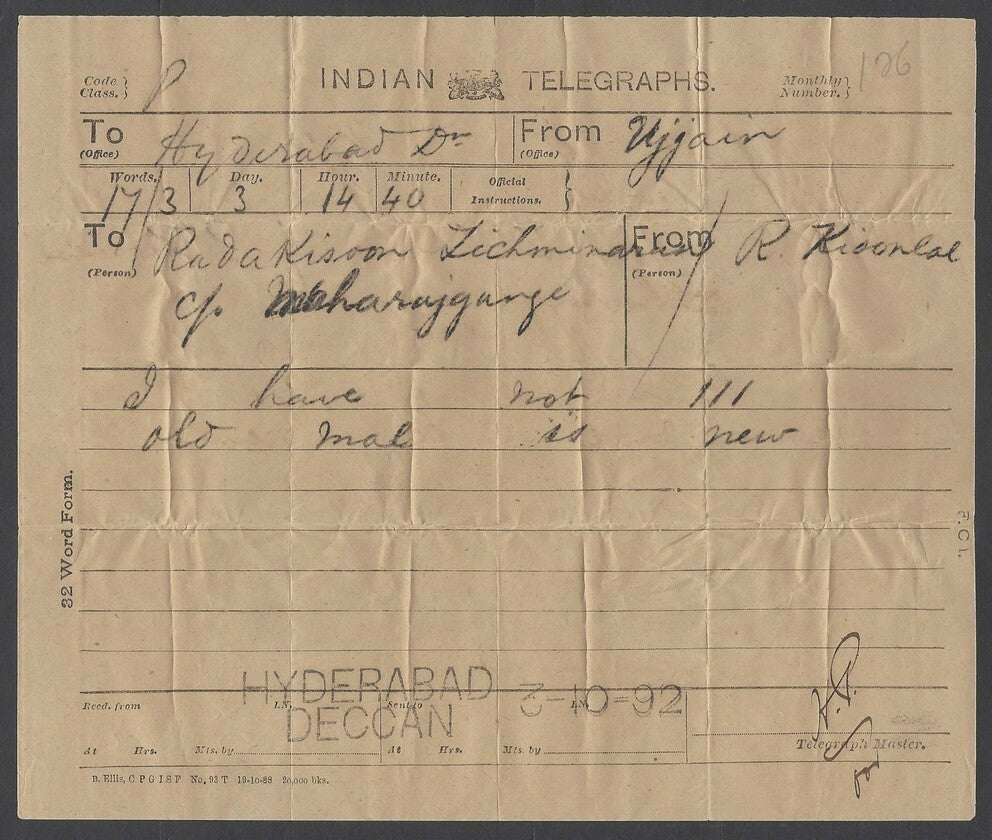 Code Class. } P INDIAN TELEGRAPHS. Monthly Number. } 126
To (Office) Hyderabad Dn From (Office) Ujjain
Words. Day. Hour. Minute. Official Instructions. }
17/3 3 14 40
To (Person) Radakisoon Lichminaran From (Person) R. Kisonlal
c/o Maharajgunge
I have not 111
old mal is new
32 Word Form.
HYDERABAD DECCAN 3-10-92
Recd. from LN. Sent to LN.
At Hrs. Mts. by At Hrs. Mts. by Telegraph Master.
for
B. Ellis, C P G I S F No. 93 T 19-10-88 20,000 bks.